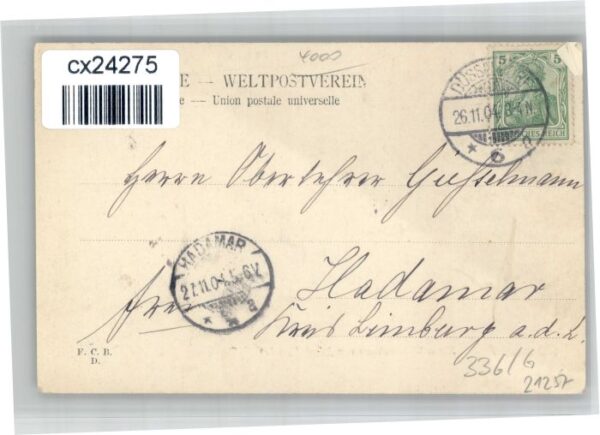 cx24275
4000
E — WELTPOSTVEREIN
e — Union postale universelle
5
DÜSSELDORF
26.11.04. 3-4 N.
* 6 n
DEUTSCHES REICH
Herrn Oberlehrer
HADAMAR
27.11.04. 5-6V.
* * a
Hadamar
Kreis Limburg a. d. L.
F. C. B.
D.
336/6
21257